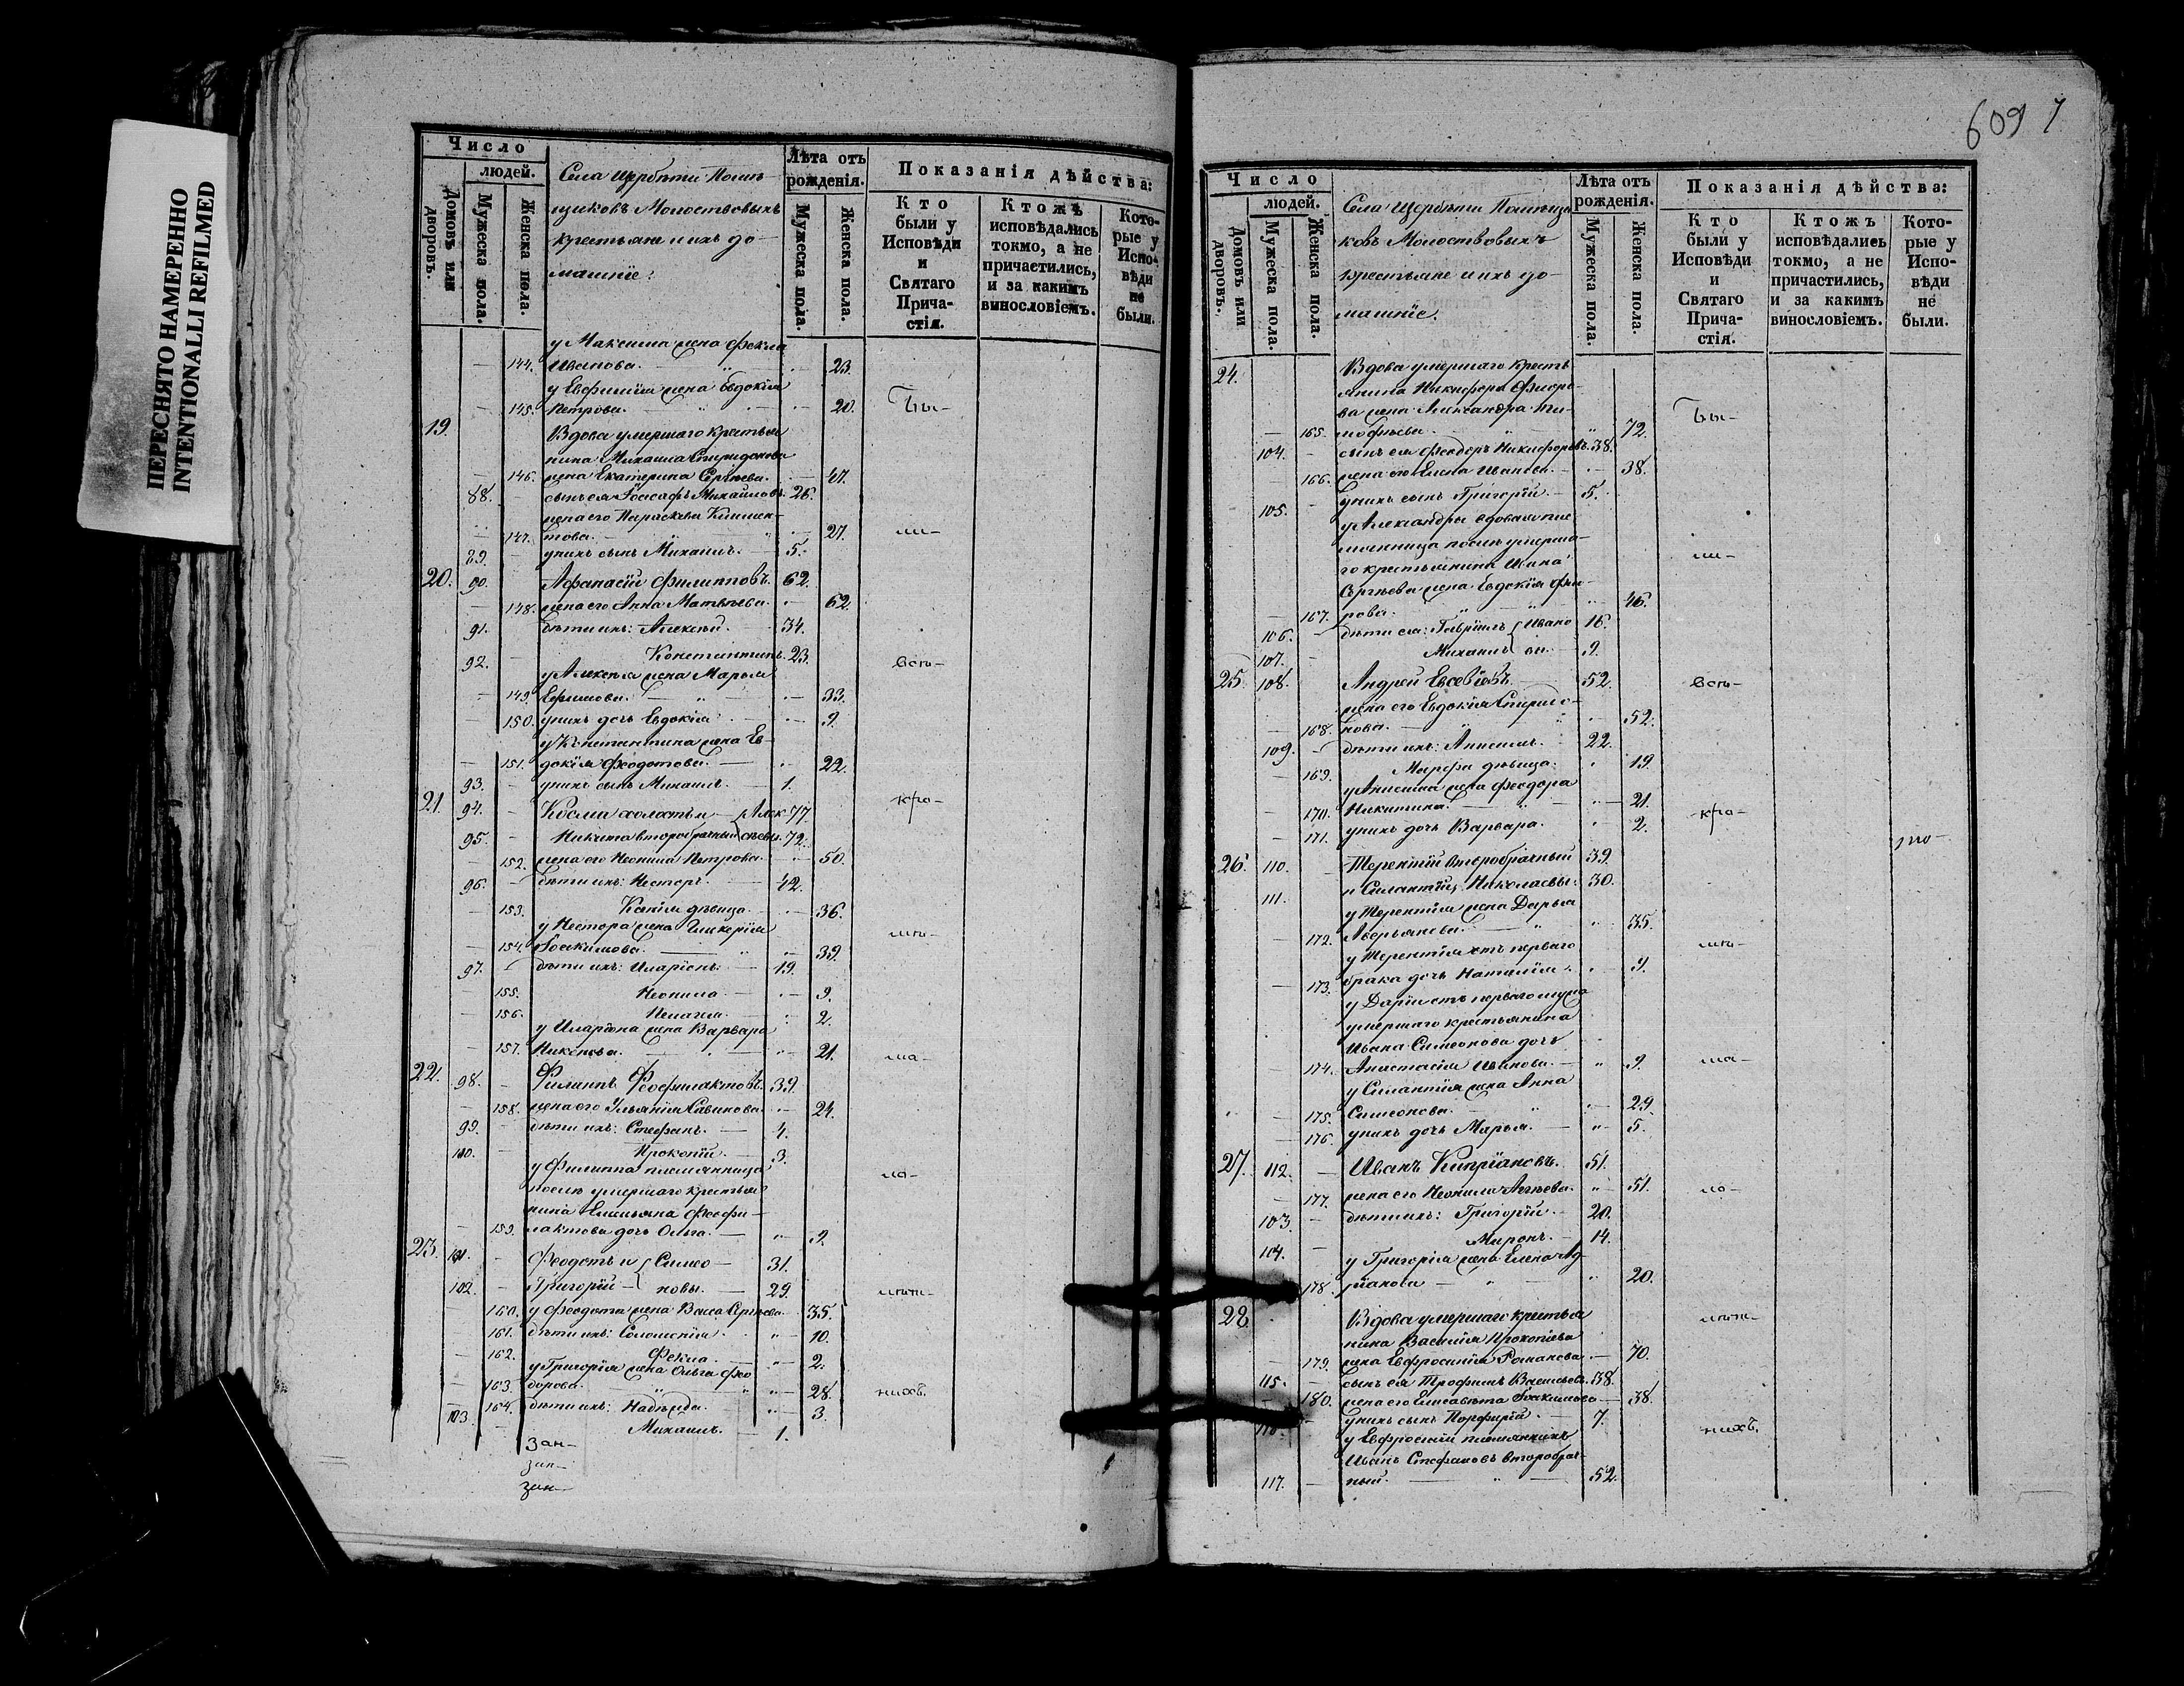 ПЕРЕСНЯТО НАМЕРЕННО
INTENTIONALLI REFILMED
Число
людей.
Домовъ или дворовъ.
Мужеска пола.
Женска пола.
Села Щербѣти Помѣ-
щиковъ Молоствовыхъ
крестьяне и ихъ до-
машніе:
Лѣта отъ
рожденія.
Мужеска пола.
Женска пола.
Показанія дѣйства:
Кто
были у
Исповѣди
и
Святаго
Прича-
стія.
Ктожъ
исповѣдались
токмо, а не
причастились,
и за какимъ
винословіемъ.
Кото-
рые у
Испо-
вѣди
не
были.
у Максима жена Фекла
— 144. Иванова. — 23.
у Евфимія жена Евдокія
— 145. Петрова. — 20. Бы-
19. Вдова умершаго крестья
нина Михаила Спиридонова
— 146. жена Екатерина Сергѣева. — 47.
88. — сынъ ея Іоасафъ Михайловъ. 26.
жена его Параскева Климен-
147. това. — 27. ли-
89. у нихъ сынъ Михаилъ. — 5.
20. 90. Афанасій Филипповъ. 62.
— 148. жена его Анна Матвѣева. — 62.
91. дѣти ихъ: Алексѣй. — 34.
92. — Константинъ. 23. всѣ-
у Алексѣя жена Марья
— 149. Ефимова. — 33.
— 150. у нихъ дочь Евдокія — 9.
у Константина жена Ев-
— 151. докія Феодотова. — 22.
93. — у нихъ сынъ Михаилъ. — 1.
21. 94. — Косма холостъ и Алек- 77. кро-
95. — Никита второбрачный сѣевы. 72.
— 152. жена его Неонила Петрова. — 50.
96. — дѣти ихъ: Несторъ. — 42.
— 153. Ксенія дѣвица. — 36.
у Нестора жена Гликерія мѣ-
— 154. Іоакимова. — 39.
97. — дѣти ихъ: Иларіонъ. — 19.
155. Неонила. — 9.
— 156. Пелагея. — 2.
у Иларіона жена Варвара
— 157. Никонова. — 21. ма-
22. 98. — Филиппъ Феофилактовъ. 39.
— 158. жена его Ульянія Савинова. — 24.
99. — дѣти ихъ: Стефанъ. — 4.
100. — Прокопій. — 3.
у Филиппа племянница ло-
послѣ умершаго крестья
нина Емельяна Феофи-
— 159. лактова дочь Ольга. — 9.
23. 101. — Феодотъ и Симео- 31.
102. — Григорій — новы. — 29. лѣт-
— 160. у Феодота жена Васса Сергѣева. 35.
— 161. дѣти ихъ: Соломонія. — 10.
— 162. Фекла. — 2.
у Григорія жена Ольга Фео
— 163. дорова. — 28. нихъ.
— 164. дѣти ихъ: Надежда. — 3.
103. — Михаилъ. — 1.
609
Число
людей.
Домовъ или дворовъ.
Мужеска пола.
Женска пола.
Села Щербѣти Помѣщи
ковъ Молоствовыхъ
крестьяне и ихъ до-
машніе.
Лѣта отъ
рожденія.
Мужеска пола.
Женска пола.
Показанія дѣйства:
Кто
были у
Исповѣди
и
Святаго
Прича-
стія.
Ктожъ
исповѣдались
токмо, а не
причастились,
и за какимъ
винословіемъ.
Кото-
рые у
Испо-
вѣди
не
были.
24. Вдова умершаго кресть
янина Никифора Флоро-
ва жена Александра Ти- Бы-
— 165. мофѣева. — 72.
104. — сынъ ея Феодоръ Никифоровъ. 38.
— 166. жена его Елена Иванова. — 38.
105. — у нихъ сынъ Григорій. — 5.
у Александры вдовая пле
мянница послѣ умерша- ли-
го крестьянина Ивана
Сергѣева жена Евдокія
— 167. рова. — 46.
106. — дѣти ея: Гавріилъ Ивано 16.
107. — Михаилъ вы. 9.
25. 108. Андрей Евсевіевъ. 52. всѣ-
жена его Евдокія Спиридо-
— 168. нова. — 52.
109. — дѣти ихъ: Анисимъ. 22.
— 169. Марфа дѣвица. 19.
у Анисима жена Феодора
— 170. Никитина. — 21. кро-
— 171. у нихъ дочь Варвара. — 2.
26. 110. — Терентій второбрачный 39.
111. и Силантій, Николаевы: 30.
у Терентія жена Дарья
— 172. Аверьянова. — 35.
у Терентія отъ перваго мѣ-
— 173. брака дочь Наталія. — 9.
у Даріи отъ перваго мужа
умершаго крестьянина
Ивана Симеонова дочь
— 174. Анастасія Иванова. — 9. ма-
у Силантія жена Анна
— 175. Симеонова. — 29.
— 176. у нихъ дочь Марья. — 5.
27. 112. — Иванъ Кипріановъ. 51.
— 177. жена его Неонила Агѣева. — 51. ло-
103 — дѣти ихъ: Григорій. — 20.
104. — Миронъ. — 14.
у Григорія жена Елена Ад
178. ріанова — 20.
28. Вдова умершаго крестья лѣт-
нина Василія Прокопіева
— 179. жена Евфросинія Романова — 70.
115. — сынъ ея Трофимъ Васильевъ. 38.
— 180. жена его Елисавета Іоакимова — 38.
116. — у нихъ сынъ Порфирій. — 7. нихъ.
у Евфросиніи племянникъ
Иванъ Стефановъ второбрач-
117. — ный. — 52.